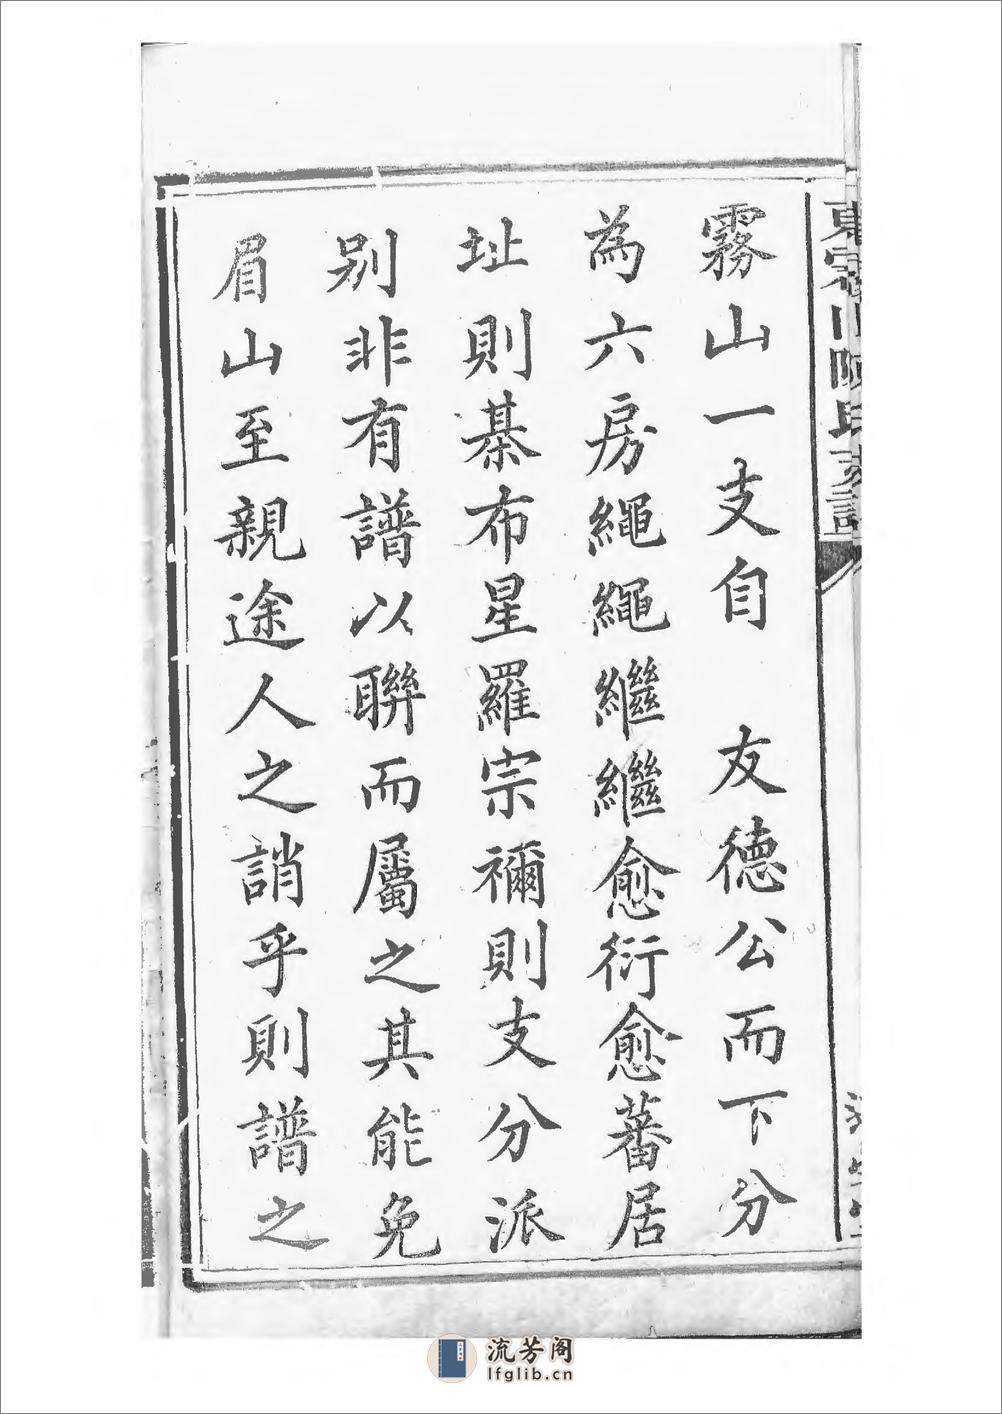 霧山一支自　友德公而下分
為六房繩繩繼繼愈衍愈蕃居
址則棊布星羅宗禰則支分派
别非有譜以聯而屬之其能免
眉山至親途人之誚乎則譜之
流芳阁
lfglib.cn